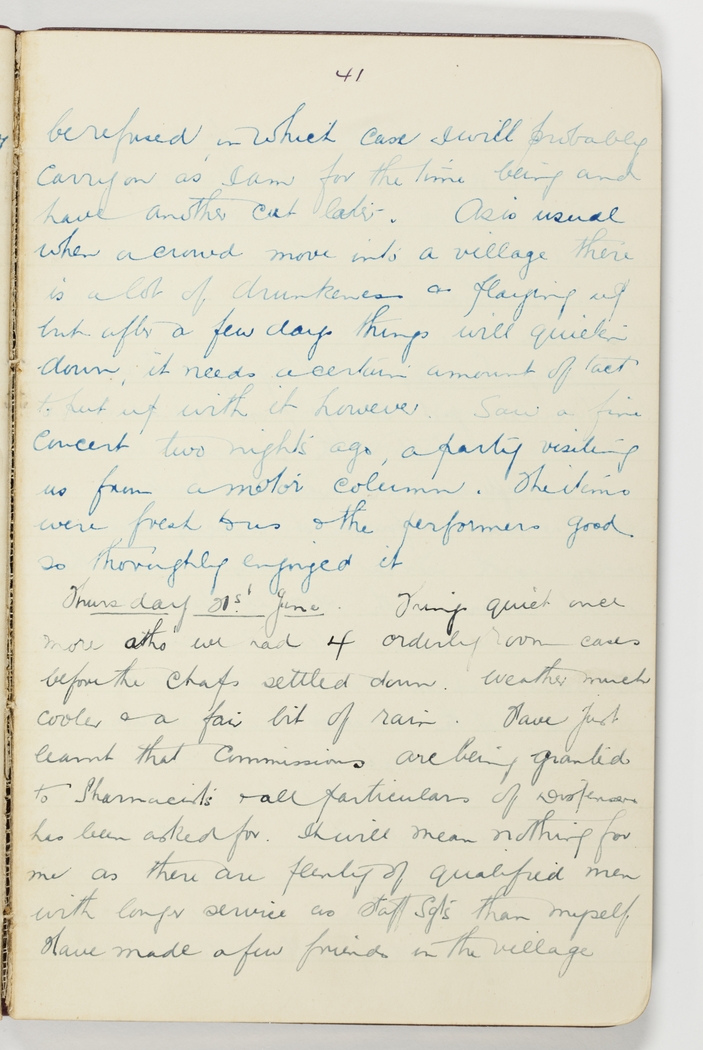 41
be refused, in which case I will probably
carry on as I am for the time being and
have another cut later. As is usual
when a crowd move into a village there
is a lot of drunkeness & flaying up
but after a few days things will quieten
down, it needs a certain amount of tact
to put up with it however. Saw a fine
concert two nights ago, a party visiting
us from a motor column. The items
were fresh to us & the performers good
so thoroughly enjoyed it
Thursday 21st June. Things quiet once
more altho' we had 4 orderly room cases
before the chaps settled down. Weather much
cooler & a fair bit of rain. Have just
learnt that Commissions are being granted
to Pharmacists & all particulars of Dispensers
has been asked for. It will mean nothing for
me as there are plenty of qualified men
with longer service as Staff Sgts than myself.
Have made a few friends in the village